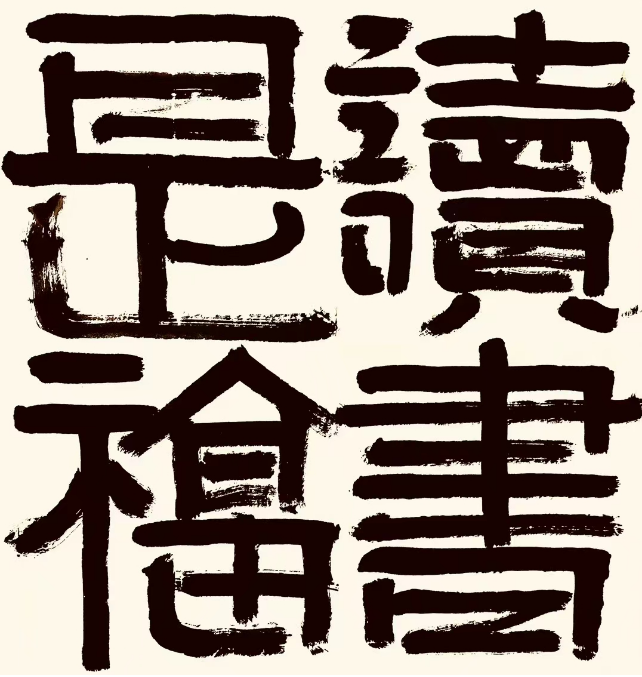 讀書
是福